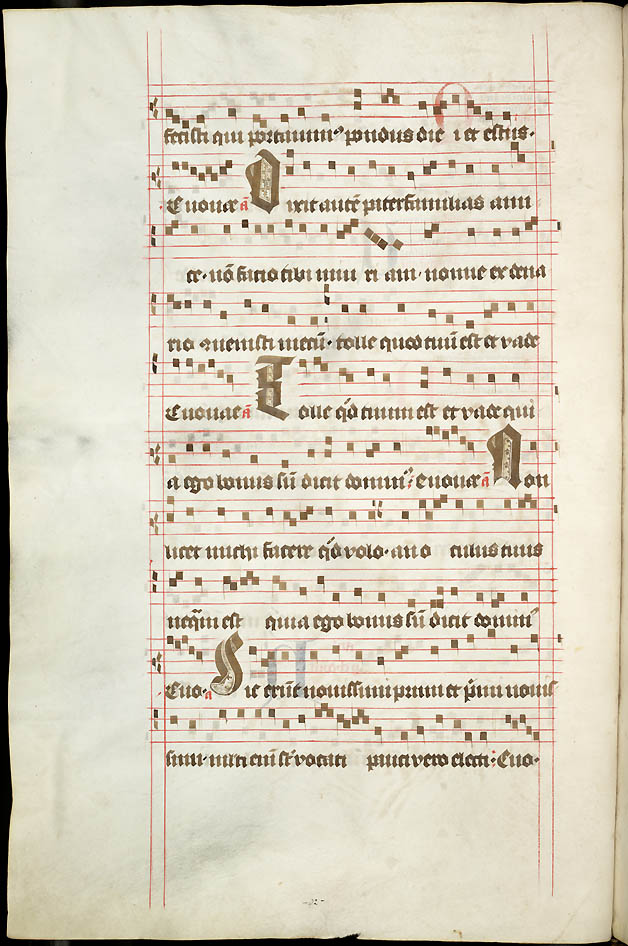 fecisti qui portauim⁹ pondus diei et estus.
Euouae a᷃ Dixit autē paterfamilias ami
ce. nō facio tibi iniuriam. nonne ex dena
rio conuenisti mecū. tolle quod tuū est et vade
Euouae a᷃ Tolle qd̄ tuum est et vade qui
a ego bonus sū dicit domin⁹. euouae a᷃ Non
licet michi facere qd̄ volo. an oculus tuus
neqam est quia ego bonus sū dicit domin⁹
Euo. a Sic erūt nouissimi primi et p̄mi nouis
simi. multi enī st̄ vocati pauci vero electi. Euo.